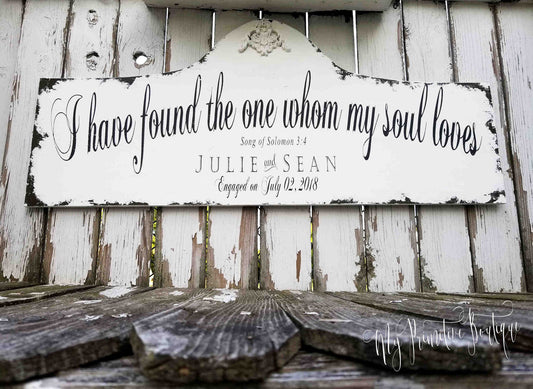 I have found the one whom my soul loves
Song of Solomon 3:4
JULIE and SEAN
Engaged on July 02, 2018
My Primitive Boutique